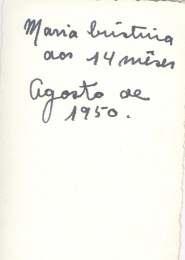 Maria Cristina
aos 14 mêses
Agosto de
1950.